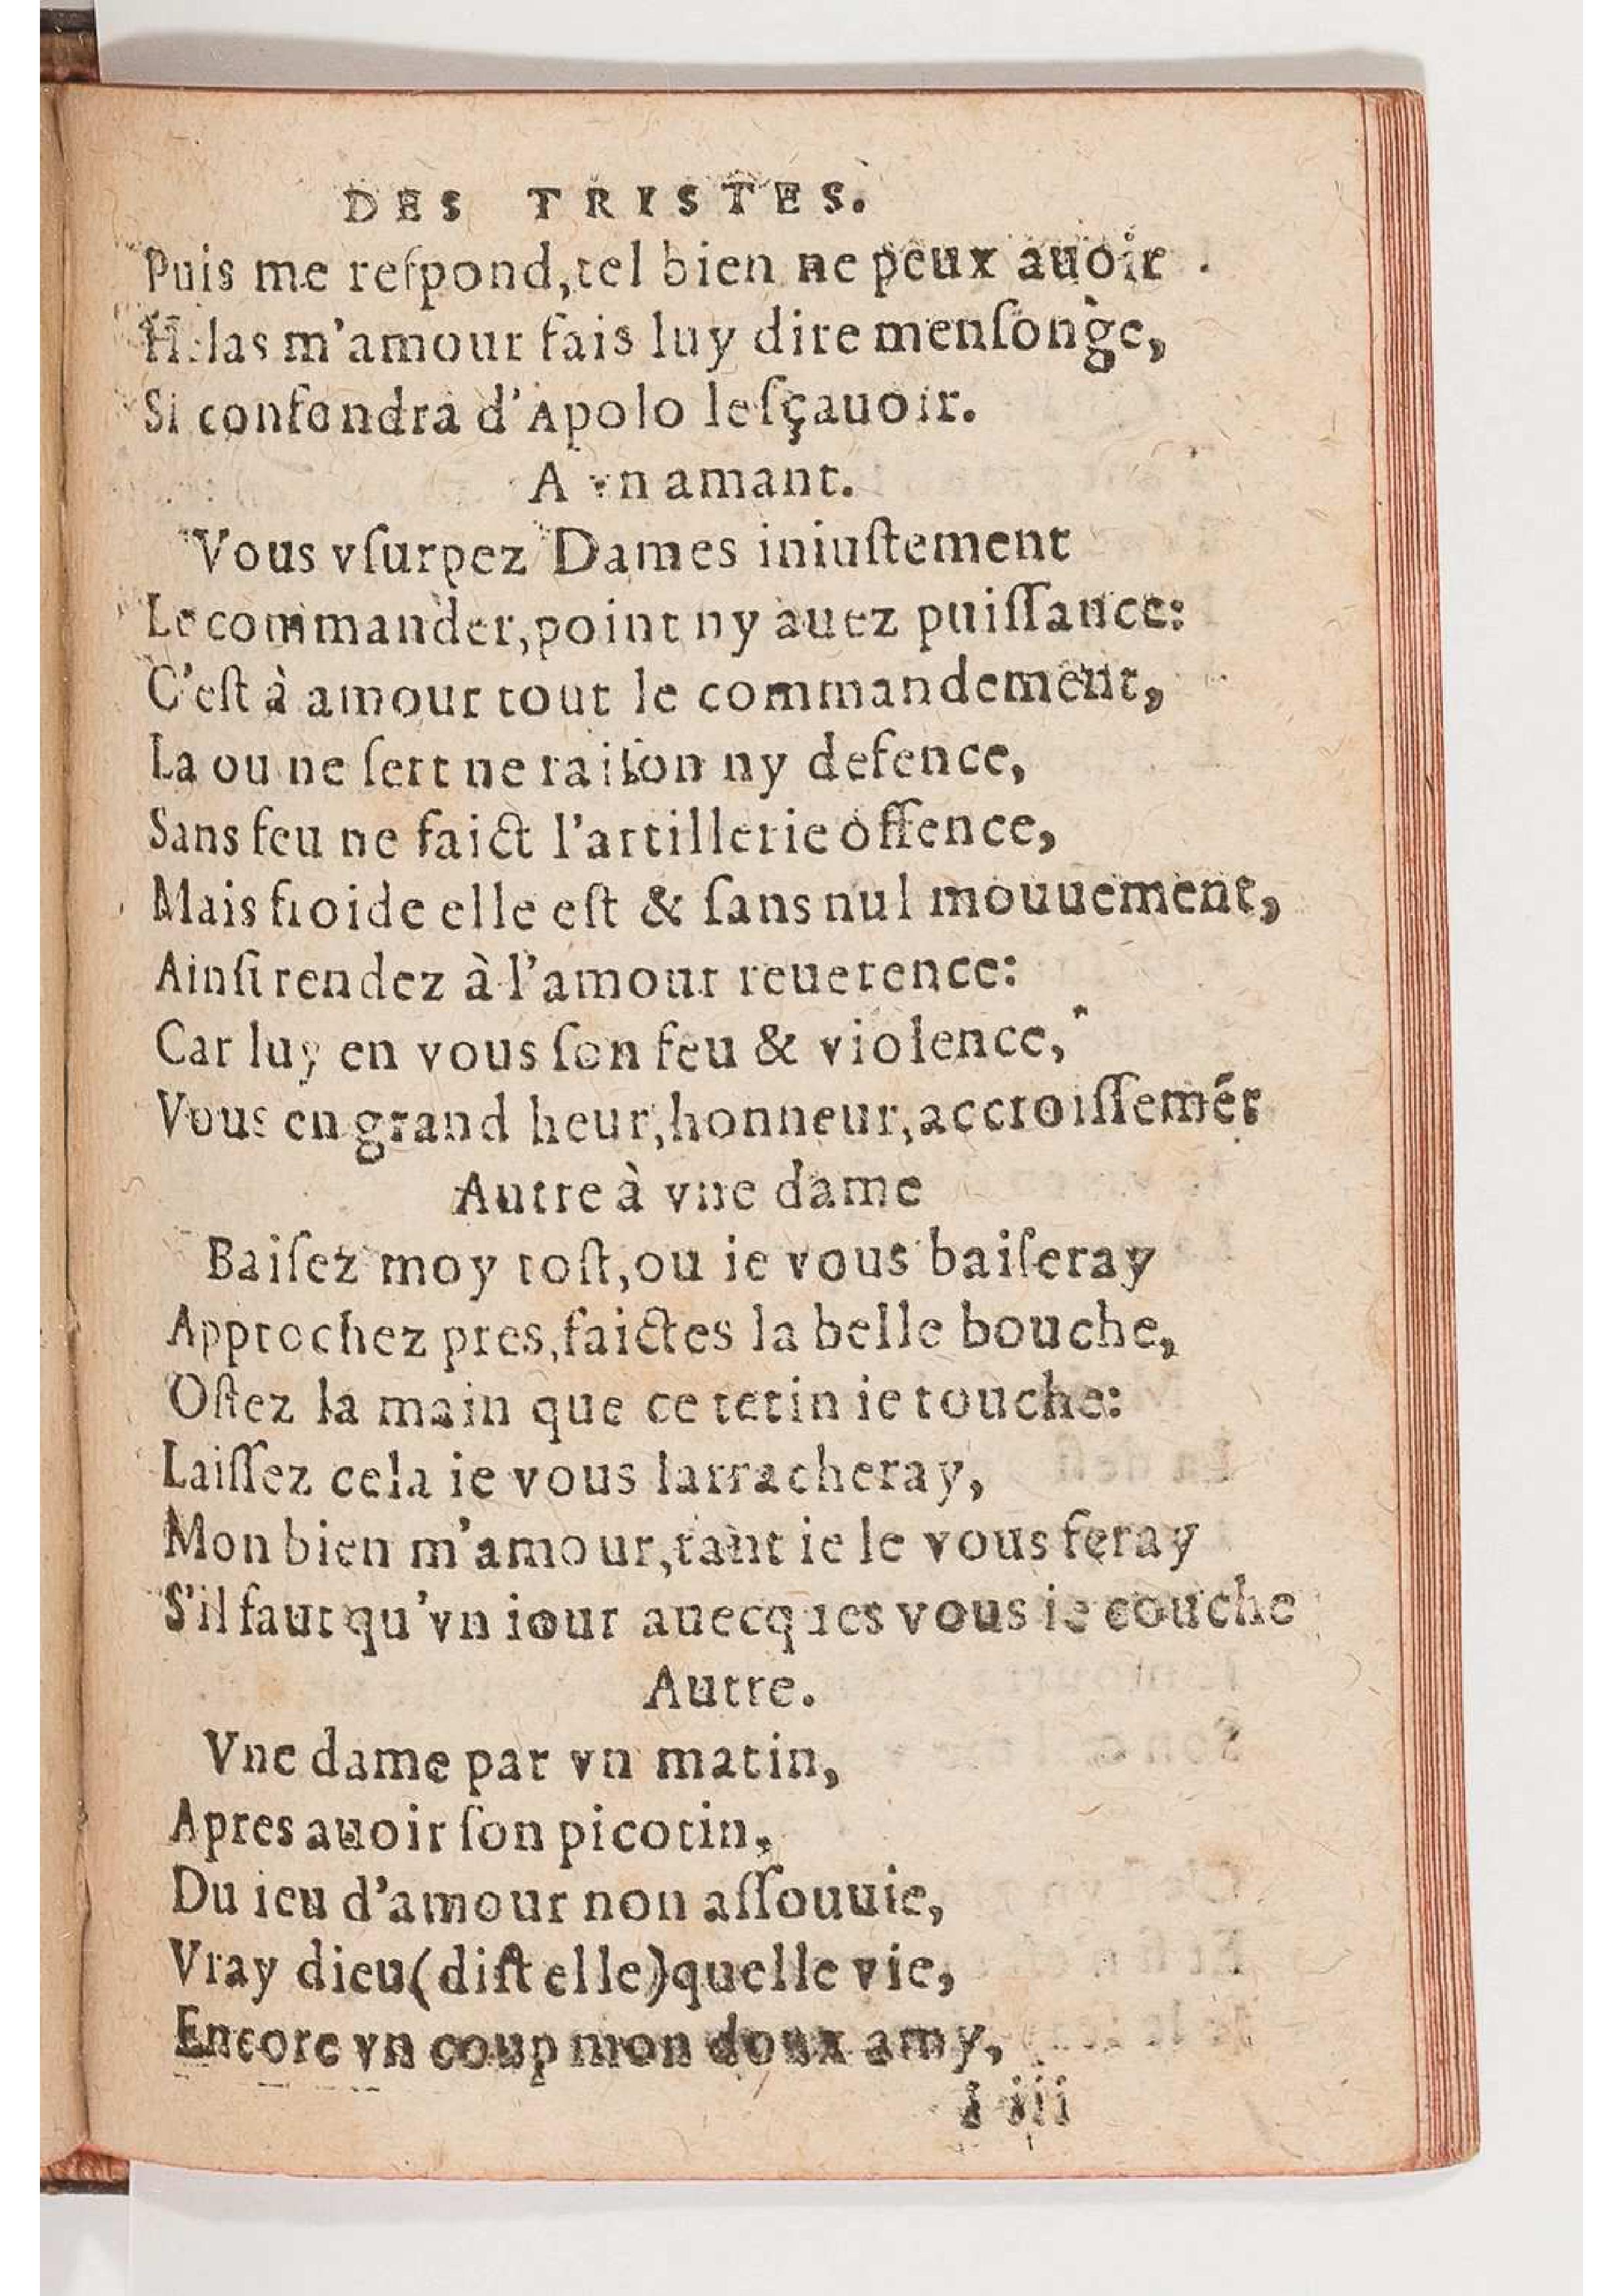 DES TRISTES.
Puis me reſpond, tel bien ne peux auoir
Helas m'amour fais luy dire menſonge,
Si confondra d'Apolo le ſçauoir.
A vn amant.
Vous vſurpez Dames iniuſtement
Le commander, point ny auez puiſſance:
C'eſt à amour tout le commandement,
La ou ne ſert ne raiſon ny defence,
Sans feu ne faict l'artillerie offence,
Mais froide elle eſt & ſans nul mouuement,
Ainſi rendez à l'amour reuerence:
Car luy en vous ſon feu & violence,
Vous en grand heur, honneur, accroiſſemẽt
Autre à vne dame
Baiſez moy toſt, ou ie vous baiſeray
Approchez pres, faictes la belle bouche,
Oſtez la main que ce tetin ie touche:
Laiſſez cela ie vous larracheray,
Mon bien m'amour, tant ie le vous feray
S'il faut qu'vn iour auecques vous ie couche
Autre.
Vne dame par vn matin,
Apres auoir ſon picotin,
Du ieu d'amour non aſſouuie,
Vray dieu (diſt elle) quelle vie,
Encore vn coup mon doux amy,
I iii